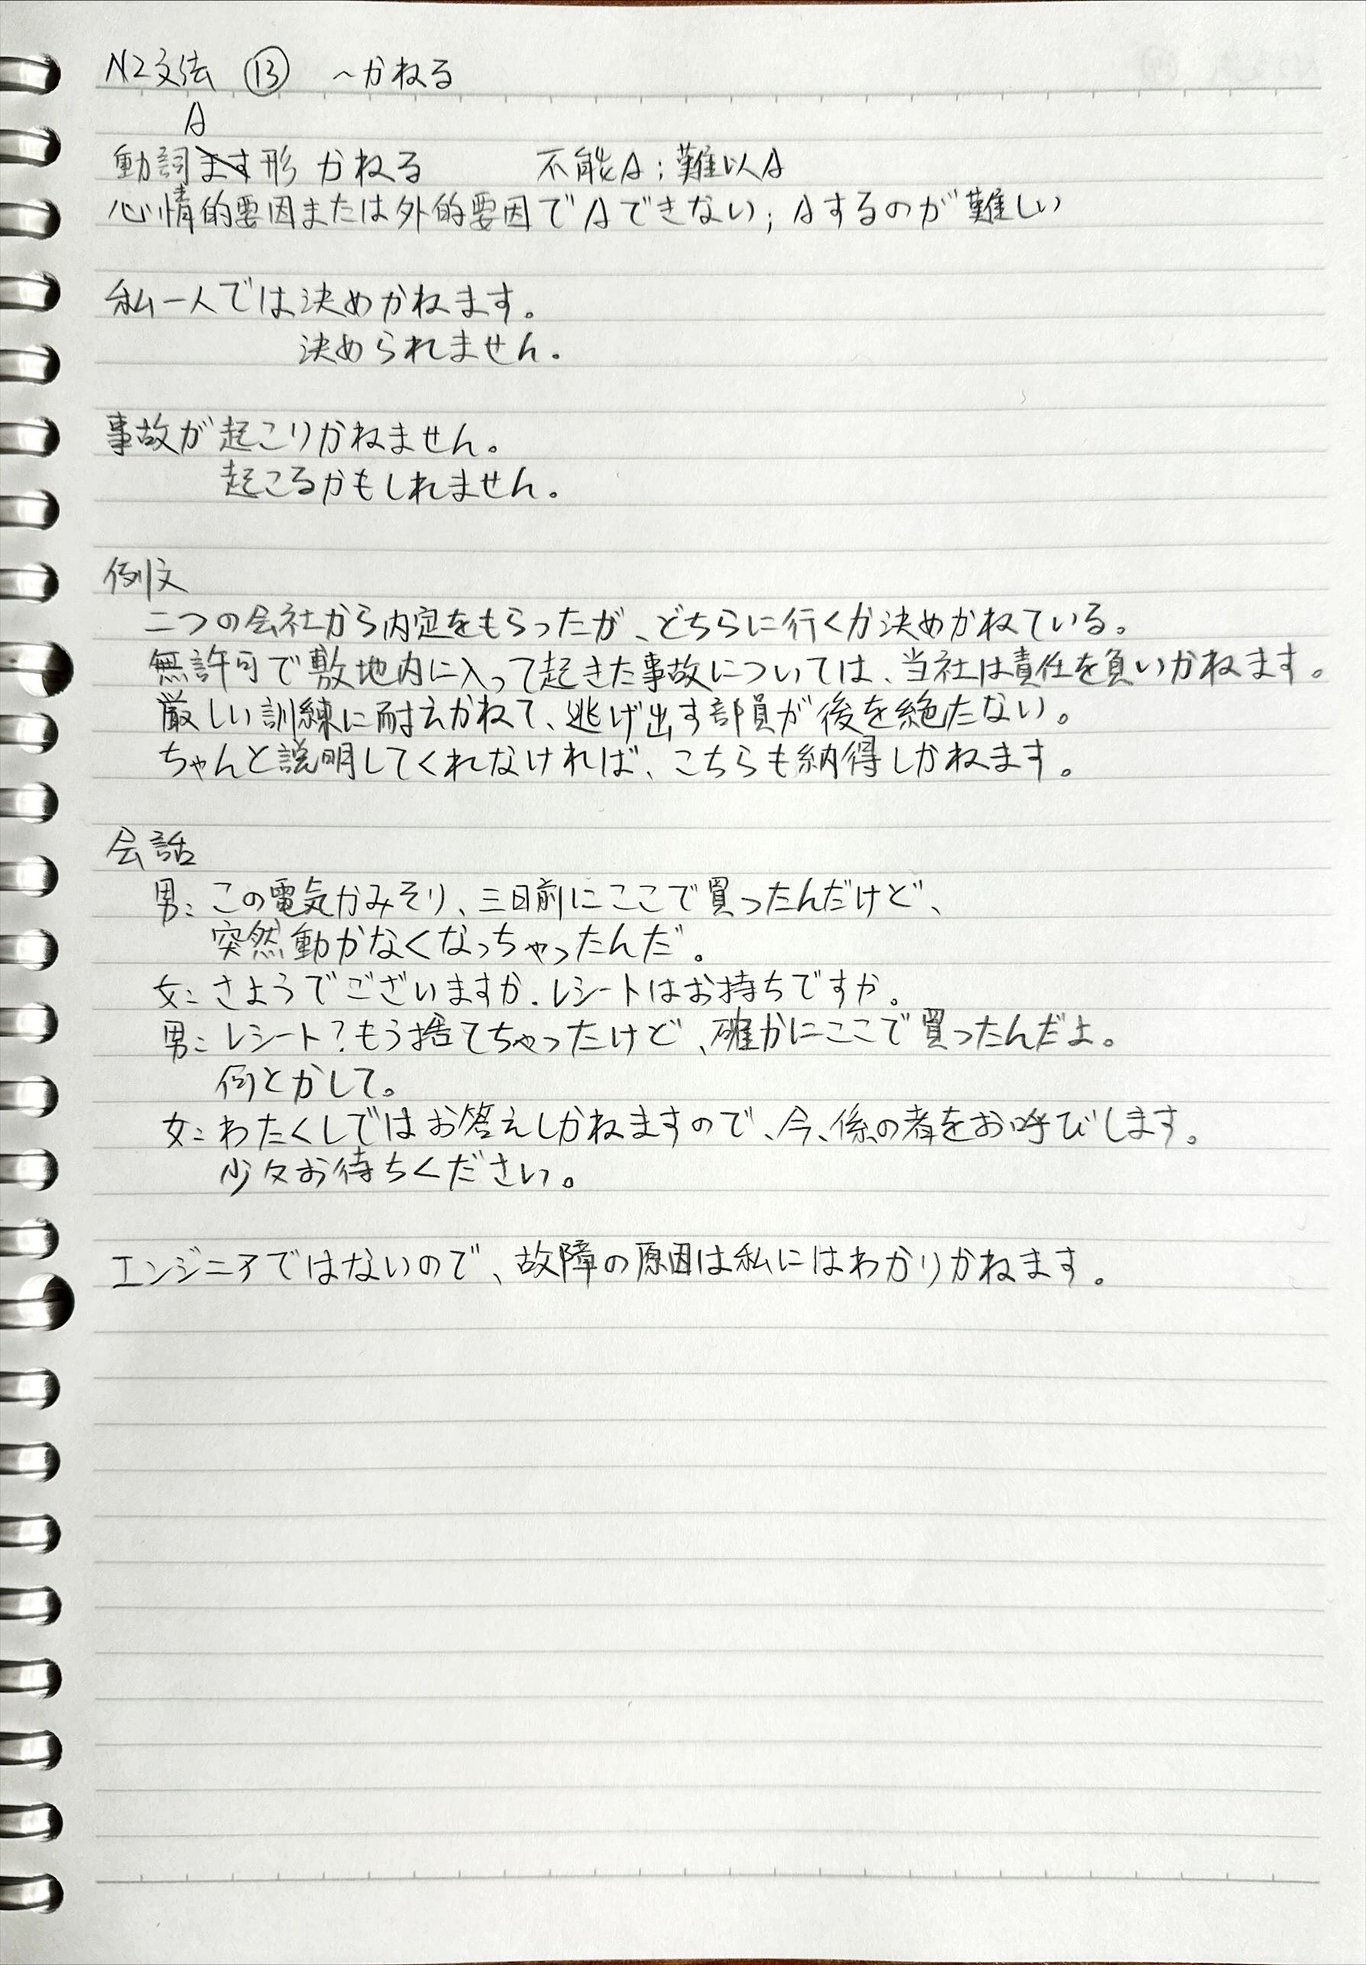 N2文法 ⑬ ～かねる
A
動詞ます形 かねる 不能A；難以A
心情的要因または外的要因でAできない；Aするのが難しい
私一人では決めかねます。
決められません。
事故が起こりかねません。
起こるかもしれません。
例文
二つの会社から内定をもらったが、どちらに行くか決めかねている。
無許可で敷地内に入って起きた事故については、当社は責任を負いかねます。
厳しい訓練に耐えかねて、逃げ出す部員が後を絶たない。
ちゃんと説明してくれなければ、こちらも納得しかねます。
会話
男：この電気かみそり、三日前にここで買ったんだけど、
突然動かなくなっちゃったんだ。
女：さようでございますか．レシートはお持ちですか。
男：レシート？もう捨てちゃったけど、確かにここで買ったんだよ。
何とかして。
女：わたくしではお答えしかねますので、今、係の者をお呼びします。
少々お待ちください。
エンジニアではないので、故障の原因は私にはわかりかねます。